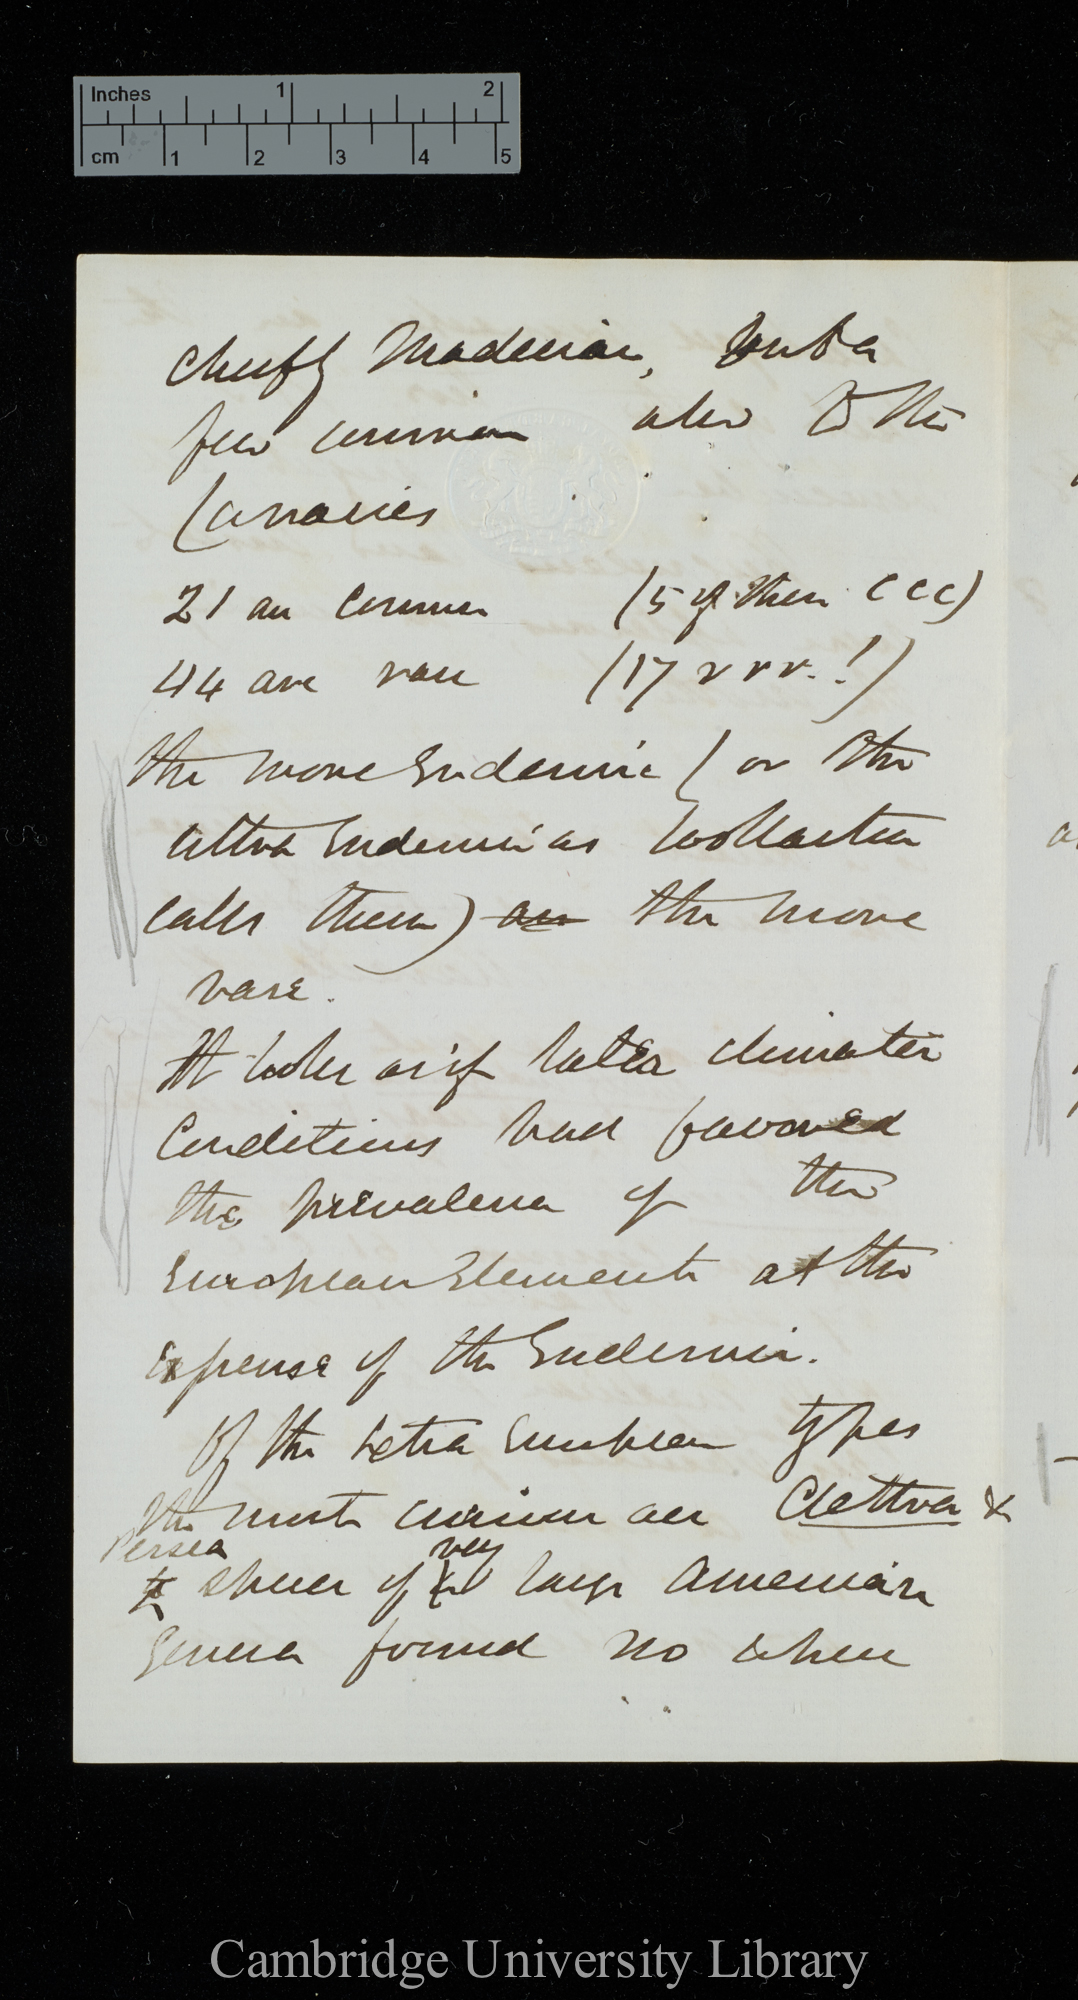 Inches 1 2
cm 1 2 3 4 5
Chiefly Madeiran, but a
few common also to the
Canaries
21 are common (5 of them CCC)
44 are rare (17 rrr.!)
the more Endemic (or the
ultra Endemic as Wollaston
calls them) are the more
rare.
It looks as if later climatic
Conditions had favored
the prevalence of the
European Elements at the
expense of the Endemic.
Of the extra European types
the most curious are Clethra &
Persea very
species of large American
Genera found no where
Cambridge University Library